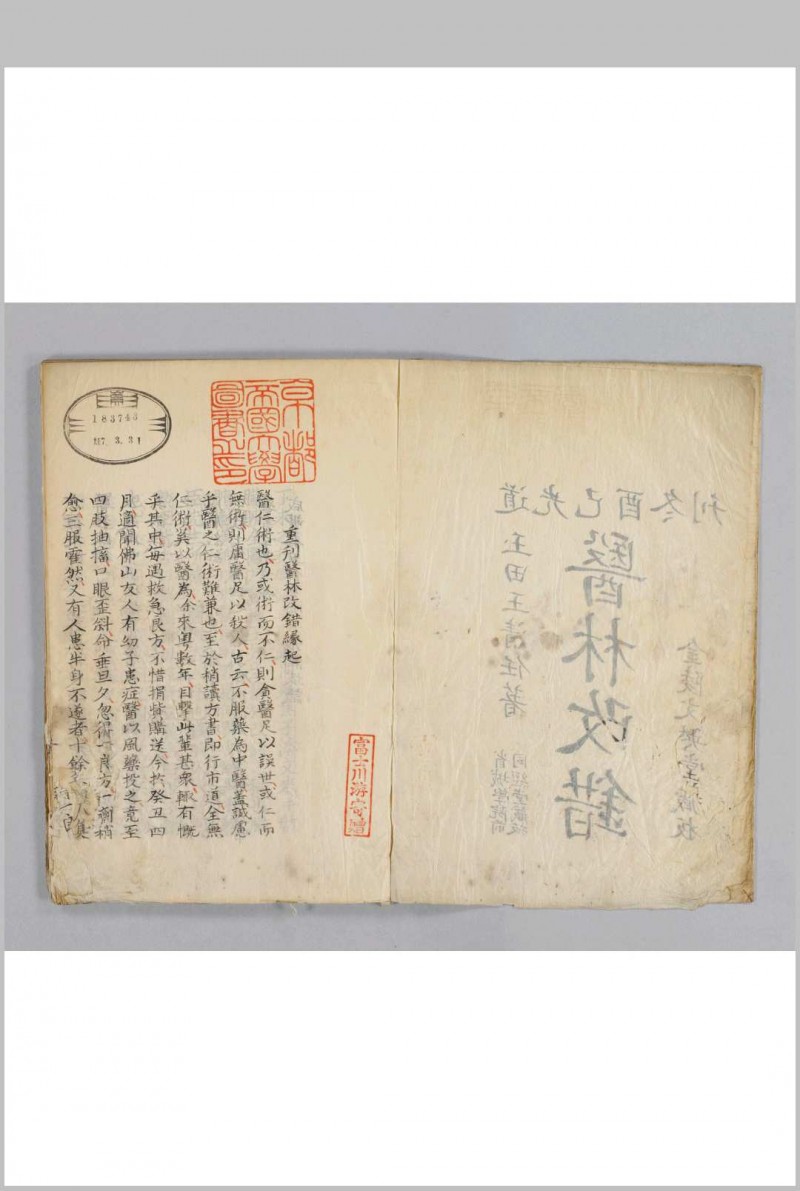 道光己酉冬刊
玉田王清任著
醫林改錯
京都
帝國大學
圖書之印
183743
7.3.31
富士川游寄贈
重刊醫林改錯緣起
醫仁術也乃或術而不仁則貪醫足以誤世或仁而
無術則庸醫足以殺人古云不服藥為中醫蓋誠慮
乎醫之仁術難兼也至於稍讀方書即行市道全無
仁術奚以醫為余來粵數年目擊此輩甚衆輒有慨
乎其中每遇救急良方不惜捐貲購送今於癸丑四
月適聞佛山友人有幼子患症醫以風藥投之竟至
四肢抽搐口眼歪斜命垂旦夕忽得一良方一劑稍
愈三服霍然又有人患半身不遂者十餘